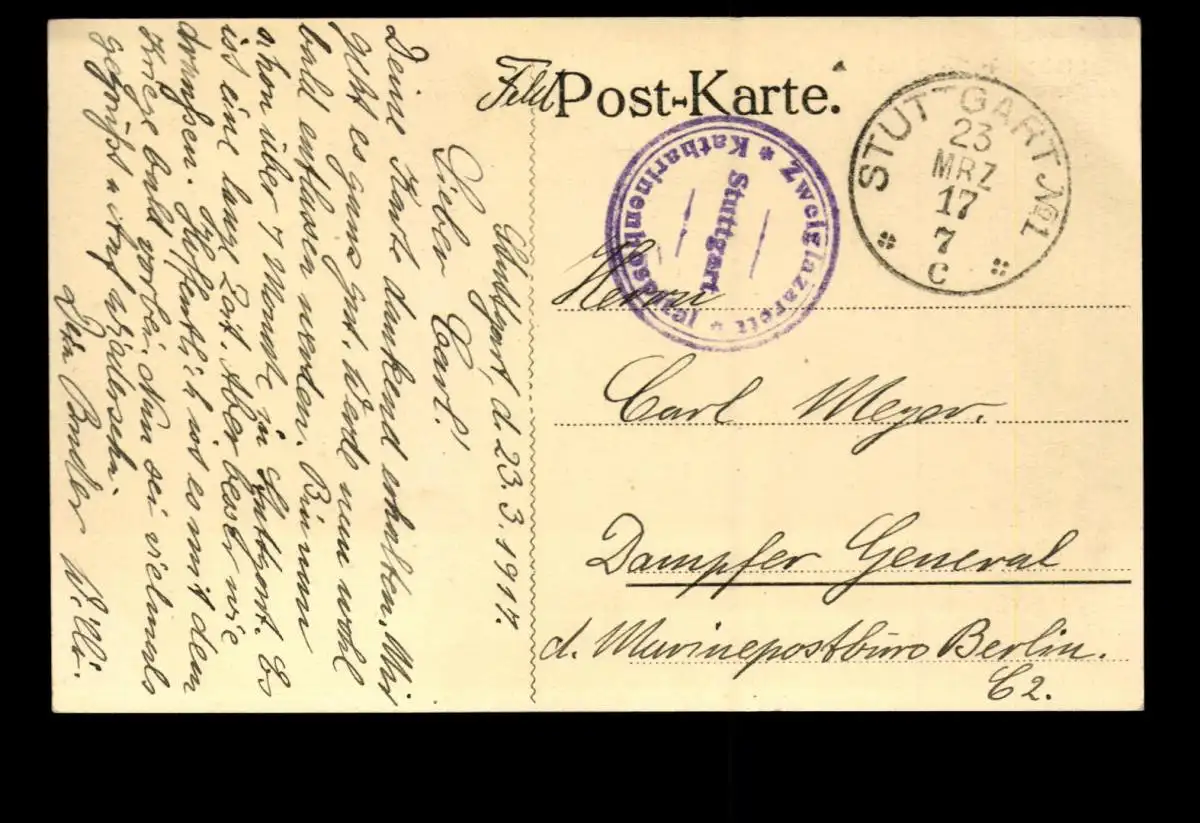 Feld Post-Karte.
STUTTGART No 1
23
MRZ
17
7
C
Zweiglazarett * Katharinenhospital *
Stuttgart
Herrn
Carl Meyer.
Dampfer General
d. Marinepostbüro Berlin.
C 2.
Stuttgart, d. 23.3.1917.
Lieber Carl!
Deine Karte dankend erhalten. Mir
geht es ganz gut. Werde nun wohl
bald entlassen werden. Bin nun
schon über 7 Monate in Stuttgart. Es
ist eine lange Zeit. Aber besser wie
draußen. Hoffentlich ist es mit dem
Kriege bald vorbei. Nun sei vielmals
gegrüßt u. Auf Wiedersehn.
Dein Bruder Willi.